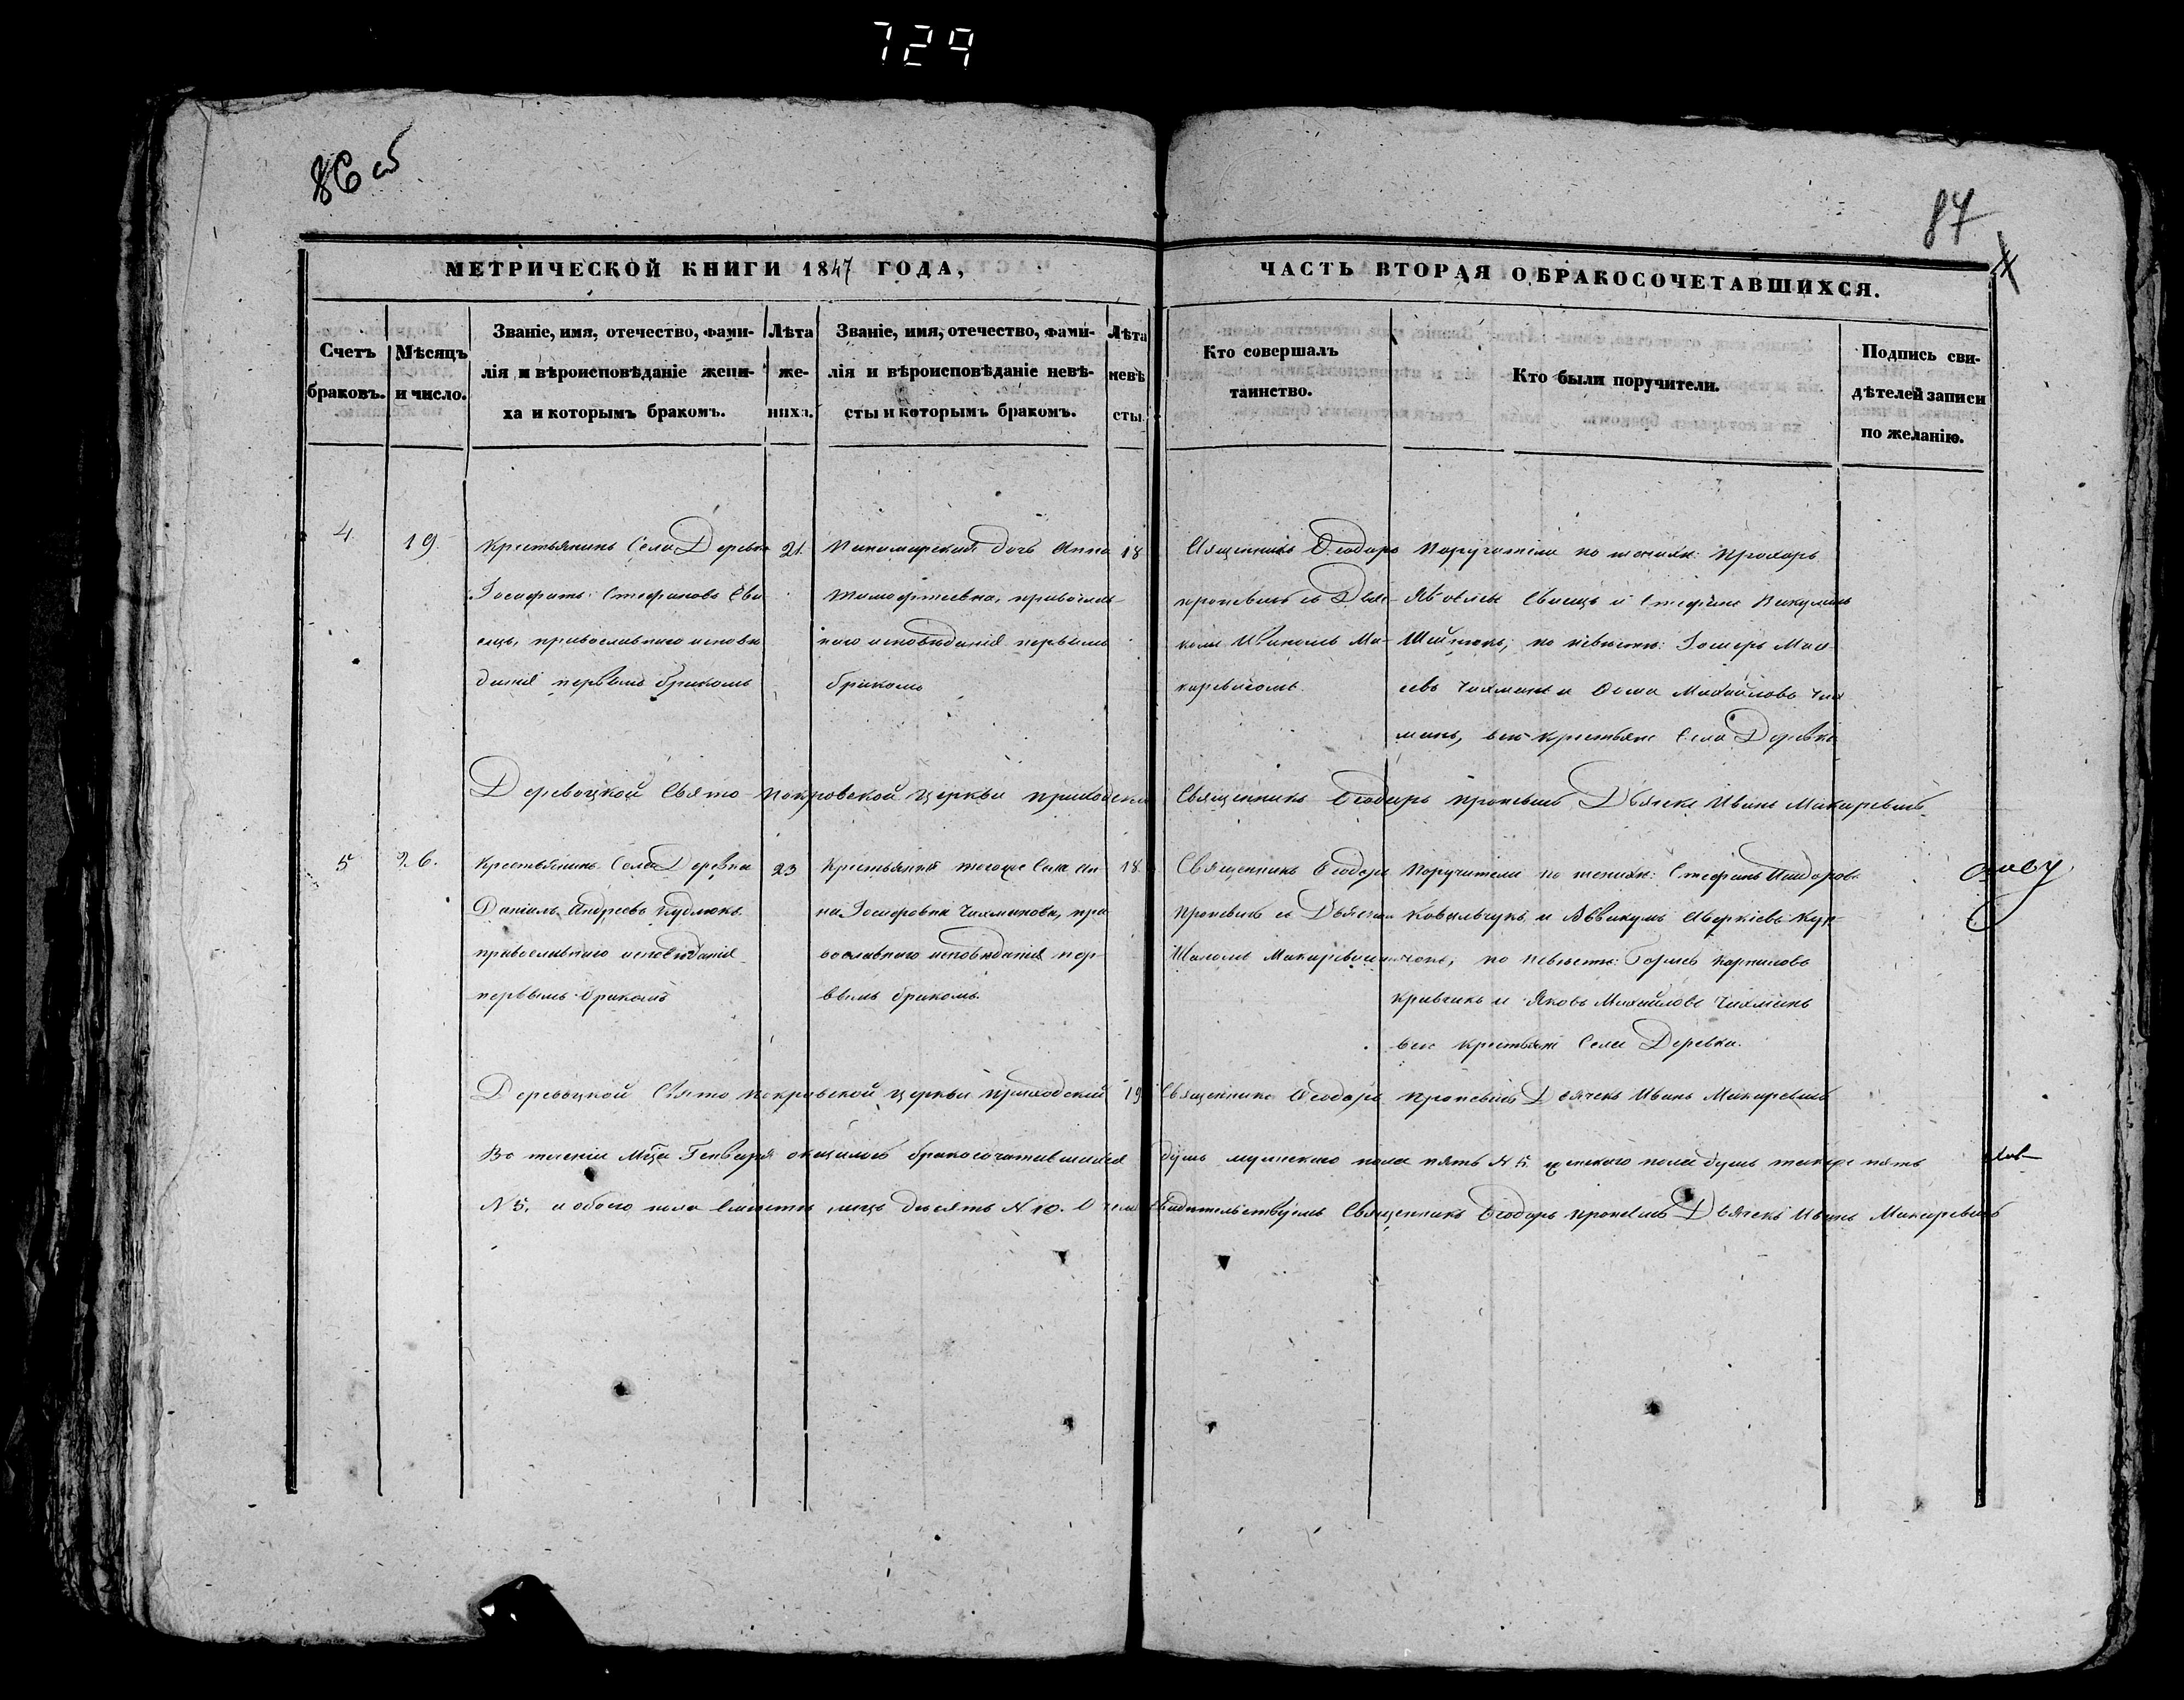 729
86 об
87
МЕТРИЧЕСКОЙ КНИГИ 1847 ГОДА,
ЧАСТЬ ВТОРАЯ О БРАКОСОЧЕТАВШИХСЯ.
Счетъ
браковъ.
Мѣсяцъ
и число.
Званіе, имя, отечество, фами-
лія и вѣроисповѣданіе жени-
ха и которымъ бракомъ.
Лѣта
же-
ниха.
Званіе, имя, отечество, фами-
лія и вѣроисповѣданіе невѣ-
сты и которымъ бракомъ.
Лѣта
невѣ
сты.
Кто совершалъ
таинство.
Кто были поручители.
Подпись сви-
дѣтелей записи
по желанію.
4.
19.
Крестьянинъ Села Деревка
Іосафатъ Стефановъ
православнаго исповѣ
данія первымъ бракомъ
21.
Пономарская дочь Анна
Тимофтеевна, православ-
наго исповѣданія первымъ
бракомъ
18
Священникъ Ѳеодоръ
Кропевичъ съ Дьяч-
комъ Иваномъ Ма-
каревичомъ.
Поручители по женихѣ: Прохоръ
Яковлевъ и Стефанъ
по невѣстѣ: Іосифъ
Чихманъ и Ѳома Михайловъ Чих
манъ, всѣ крестьяне Села Деревка
Деревоцкой Свято-Покровской церкви приходскій
Священникъ Ѳеодоръ Кропевичъ Дьячекъ Иванъ Макаревичъ
5
26.
Крестьянинъ Села Деревка
Даніилъ Андреевъ Кудлюкъ
православнаго исповѣданія
первымъ бракомъ
23
Крестьянка тогоже Села Ан
на Іосифовна Чихманова, пра
вославнаго исповѣданія пер-
вымъ бракомъ.
18.
Священникъ Ѳеодоръ
Кропевичъ съ Дьячкомъ
Иваномъ Макаревичомъ
Поручители по женихѣ: Стефанъ
Ковальчукъ и Аввакумъ Аверкіевъ
по невѣстѣ: Карпиловъ
Кравчикъ и Яковъ Михайловъ Чихманъ
всѣ крестьяне Села Деревка.
Деревоцкой Свято Покровской церкви приходскій
19
Священникъ Ѳеодоръ Кропевичъ Дьячекъ Иванъ Макаревичъ
Въ теченіи Мца Генваря оказалось бракосочетавшихся
душъ мужескаго пола пять № 5. женскаго пола душъ также пять
№ 5. и обоего пола вмѣстѣ лицъ десять № 10. О чемъ
свидѣтельствуемъ Священникъ Ѳеодоръ Кропевичъ Дьячекъ Иванъ Макаревичъ